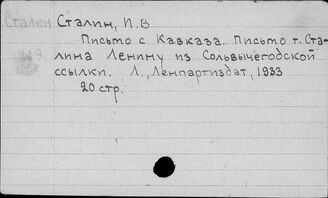 Сталин Сталин, И.В
Письмо с Кавказа. Письмо т. Ста-
лина Ленину из Сольвычегодской
ссылки. Л., Ленпартиздат, 1933
20 стр.